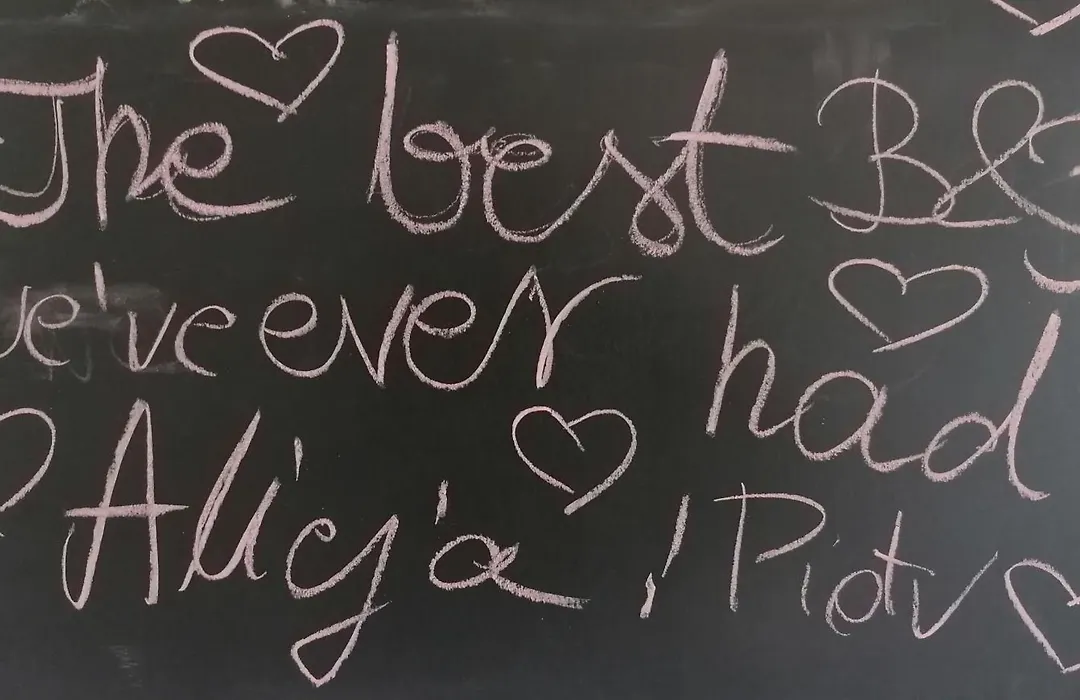 The best B&
we've ever had
Alicja i Piotr